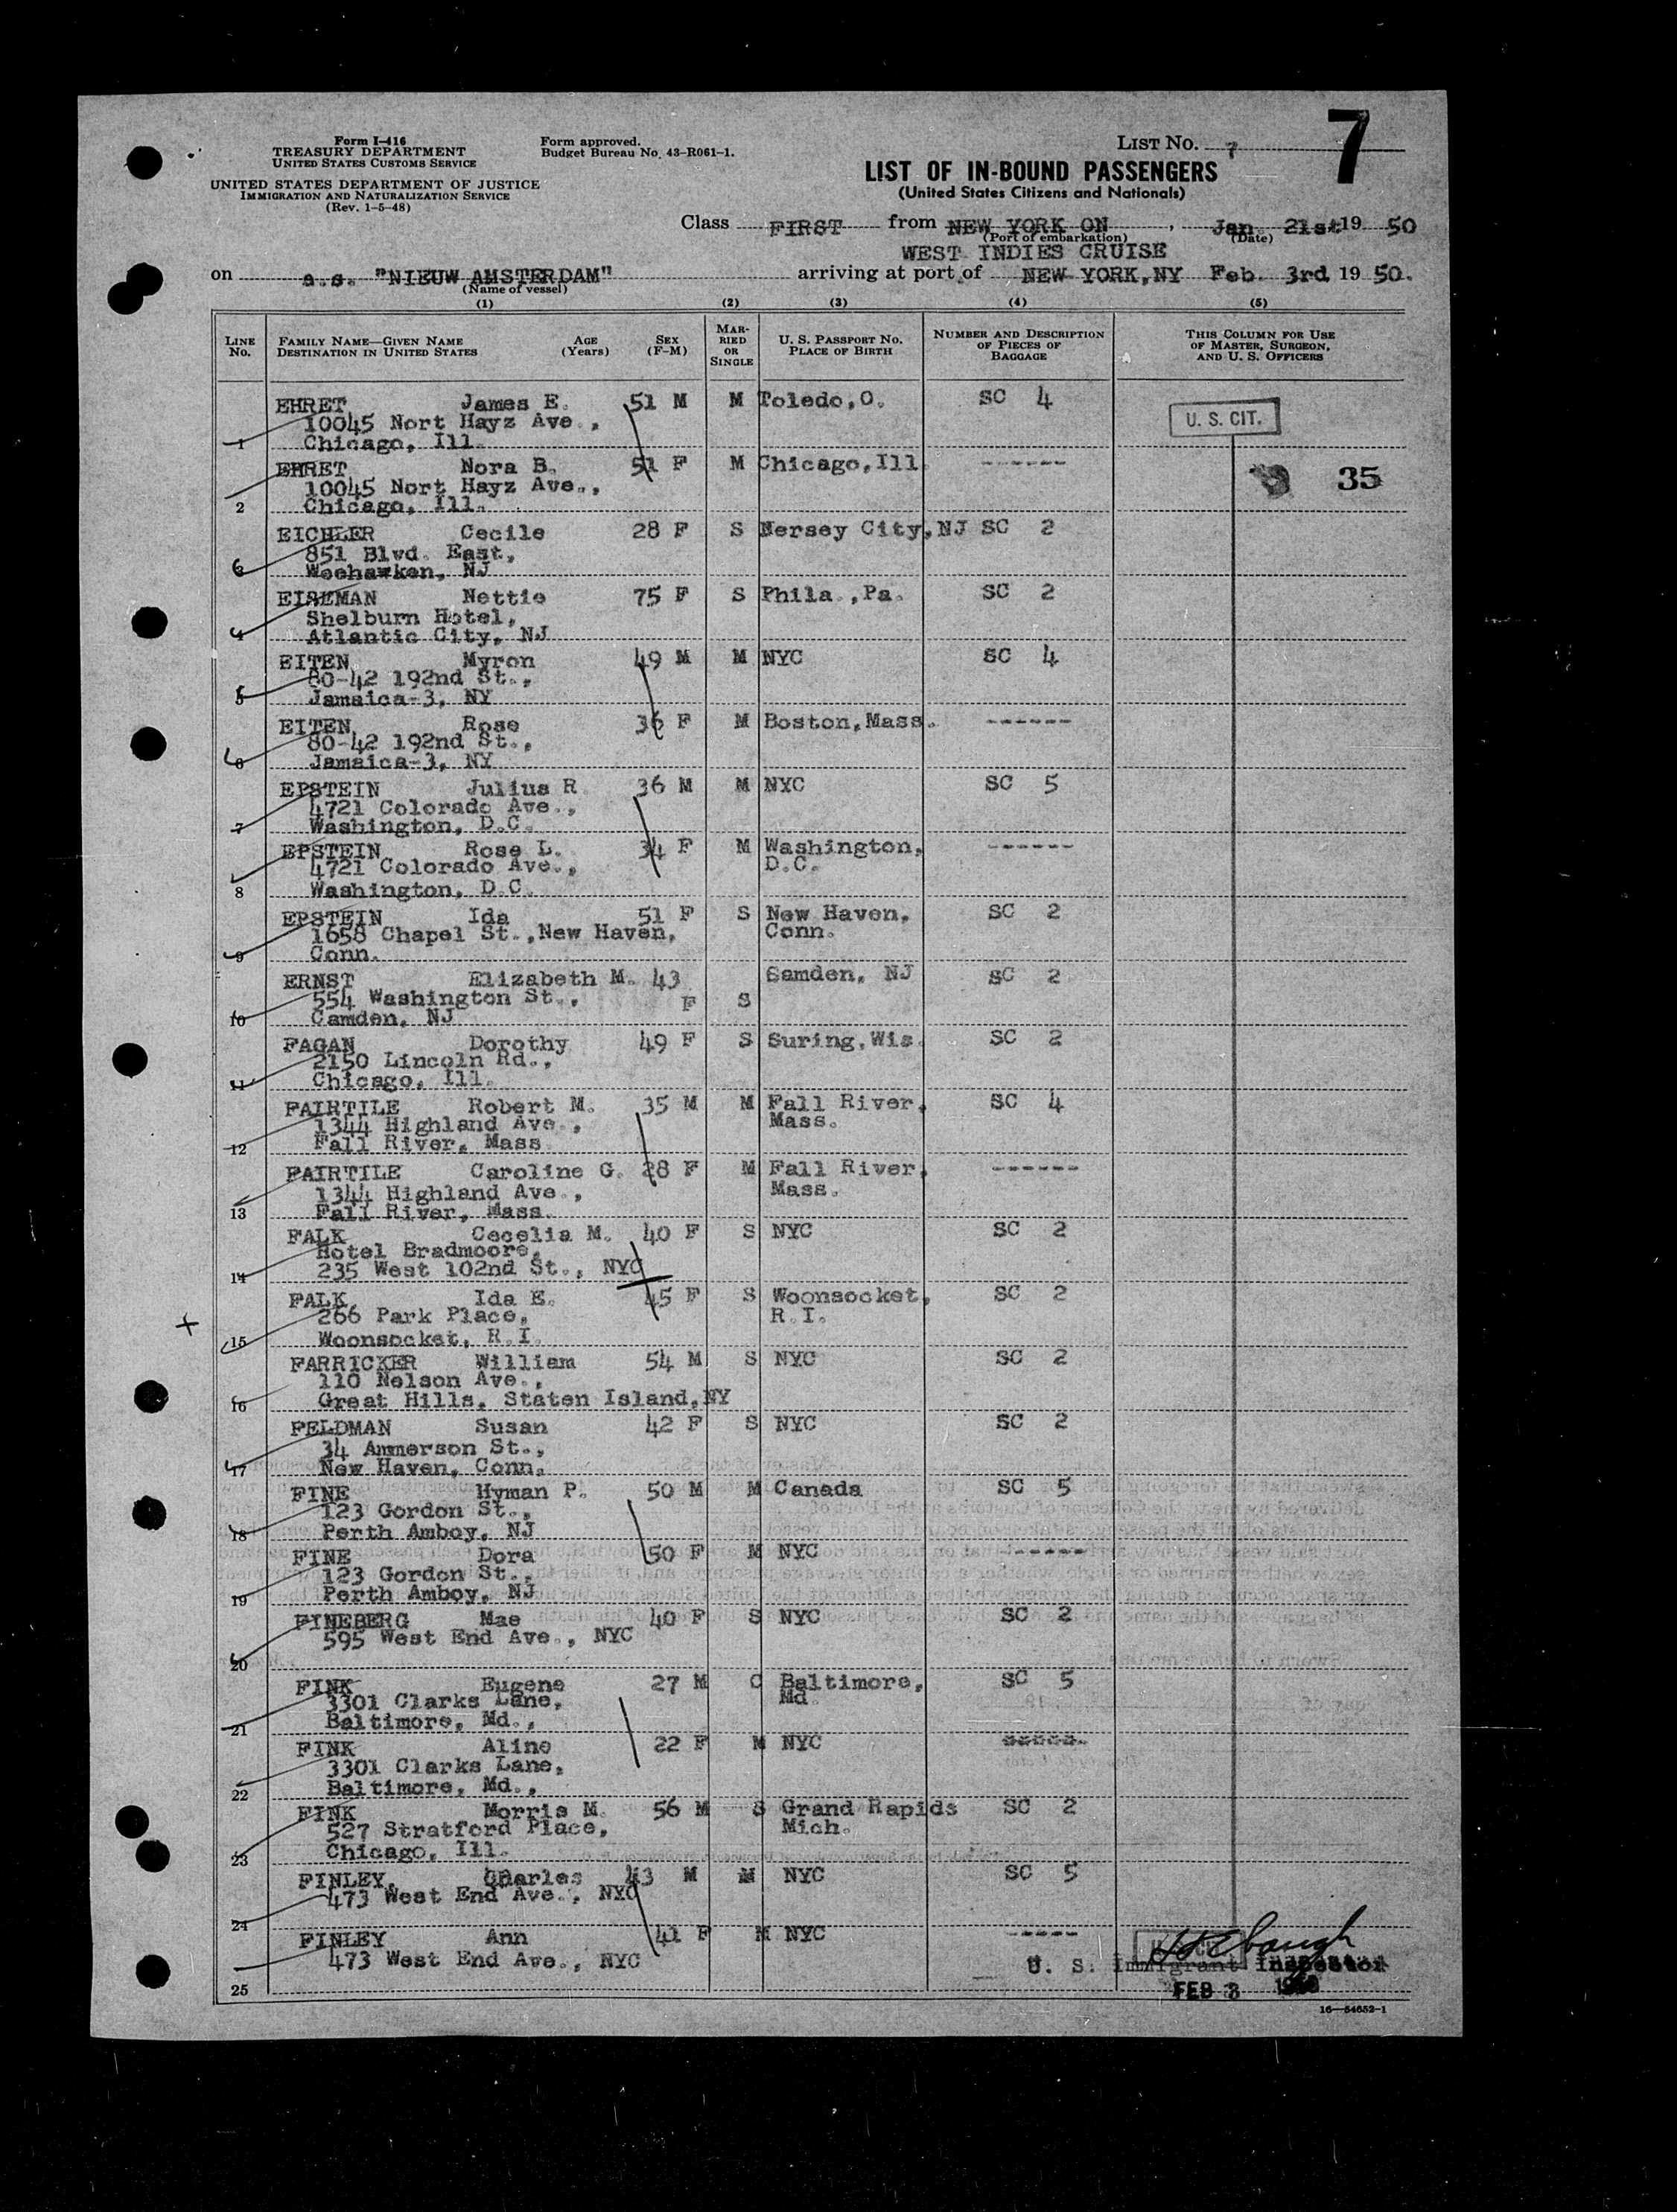 Form I-416
TREASURY DEPARTMENT
UNITED STATES CUSTOMS SERVICE
Form approved.
Budget Bureau No. 43-R061-1.
LIST NO. 7
7
UNITED STATES DEPARTMENT OF JUSTICE
IMMIGRATION AND NATURALIZATION SERVICE
(Rev. 1-5-48)
LIST OF IN-BOUND PASSENGERS
(United States Citizens and Nationals)
Class FIRST from NEW YORK ON, Jan. 21st 19 50
(Port of embarkation) (Date)
WEST INDIES CRUISE
on s.s. "NIEUW AMSTERDAM" arriving at port of NEW YORK,NY Feb. 3rd 19 50.
(Name of vessel)
(1) (2) (3) (4) (5)
LINE NO. FAMILY NAME—GIVEN NAME DESTINATION IN UNITED STATES AGE (Years) SEX (F-M) MARRIED OR SINGLE U. S. PASSPORT NO. PLACE OF BIRTH NUMBER AND DESCRIPTION OF PIECES OF BAGGAGE THIS COLUMN FOR USE OF MASTER, SURGEON, AND U. S. OFFICERS
EHRET James E. 51 M M Toledo,O. SC 4
U. S. CIT.
10045 Nort Hayz Ave.,
1 Chicago, Ill.
EHRET Nora B. 51 F M Chicago,Ill. ------
35
10045 Nort Hayz Ave.,
2 Chicago, Ill.
EICHLER Cecile 28 F S Jersey City,NJ SC 2
851 Blvd. East,
3 Weehawken, NJ
EISEMAN Nettie 75 F S Phila.,Pa. SC 2
Shelburn Hotel,
4 Atlantic City, NJ
EITEN Myron 49 M M NYC SC 4
80-42 192nd St.,
5 Jamaica-3, NY
EITEN Rose 36 F M Boston,Mass. ------
80-42 192nd St.,
6 Jamaica-3, NY
EPSTEIN Julius R. 36 M M NYC SC 5
4721 Colorado Ave.,
7 Washington, D.C.
EPSTEIN Rose L. 34 F M Washington, ------
4721 Colorado Ave., D.C.
8 Washington, D.C.
EPSTEIN Ida 51 F S New Haven, SC 2
1658 Chapel St.,New Haven, Conn.
9 Conn.
ERNST Elizabeth M. 43 Camden, NJ SC 2
554 Washington St., F S
10 Camden, NJ
FAGAN Dorothy 49 F S Suring,Wis. SC 2
2150 Lincoln Rd.,
11 Chicago, Ill.
FAIRTILE Robert M. 35 M M Fall River, SC 4
1344 Highland Ave., Mass.
12 Fall River, Mass.
FAIRTILE Caroline G. 28 F M Fall River, ------
1344 Highland Ave., Mass.
13 Fall River, Mass.
FALK Cecelia M. 40 F S NYC SC 2
Hotel Bradmoore,
14 235 West 102nd St., NYC
FALK Ida E. 45 F S Woonsocket, SC 2
266 Park Place, R.I.
15 Woonsocket, R.I.
FARRICKER William 54 M S NYC SC 2
110 Nelson Ave.,
16 Great Hills, Staten Island,NY
FELDMAN Susan 42 F S NYC SC 2
34 Ammerson St.,
17 New Haven, Conn.
FINE Hyman P. 50 M M Canada SC 5
123 Gordon St.,
18 Perth Amboy, NJ
FINE Dora 50 F M NYC ------
123 Gordon St.,
19 Perth Amboy, NJ
FINEBERG Mae 40 F S NYC SC 2
595 West End Ave., NYC
20
FINK Eugene 27 M C Baltimore, SC 5
3301 Clarks Lane, Md.
21 Baltimore, Md.,
FINK Aline 22 F M NYC
3301 Clarks Lane,
22 Baltimore, Md.,
FINK Morris M. 56 M S Grand Rapids SC 2
527 Stratford Place, Mich.
23 Chicago, Ill.
FINLEY, Charles 43 M M NYC SC 5
473 West End Ave., NYC
24
FINLEY Ann 41 F M NYC -----
473 West End Ave., NYC
U. S. Immigrant Inspector
25
FEB 3 1950
16—54652-1